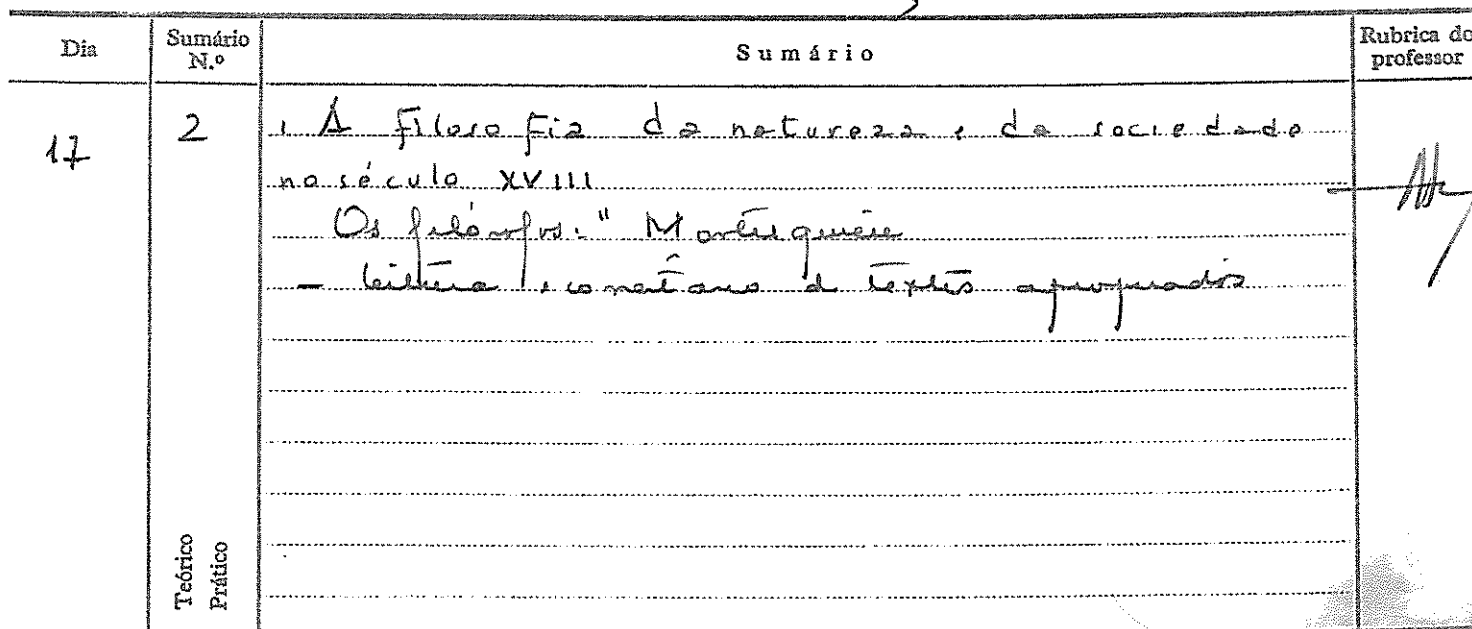 Dia
Sumário N.º
Sumário
Rubrica do professor
17
2
. A filosofia da natureza e da sociedade
no século XVIII
Os filósofos: " Montesquieu
- leitura e comentário de textos apropriados
Teórico
Prático